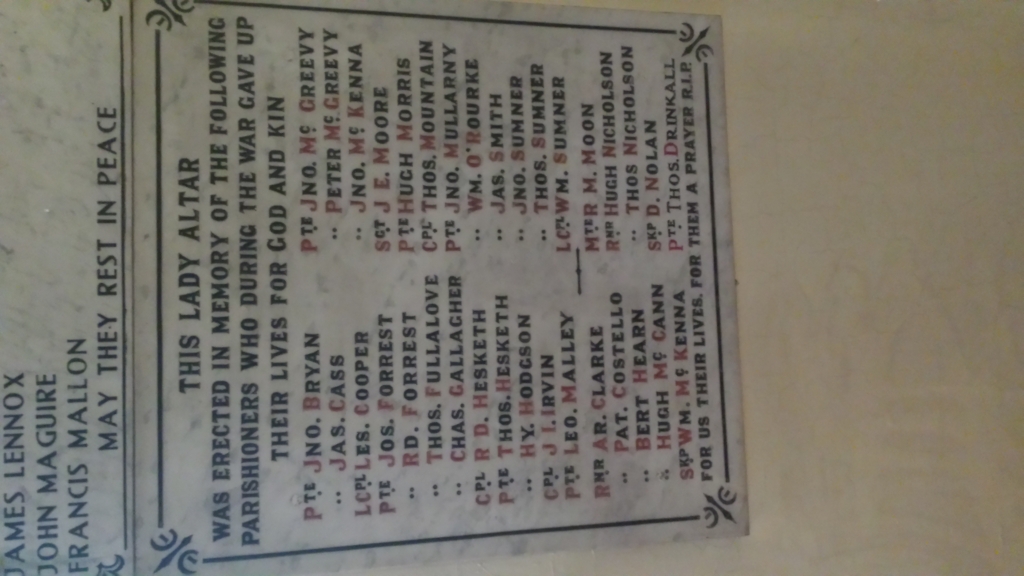 JAMES LENNOX
JOHN MAGUIRE
FRANCIS MALLON
MAY THEY REST IN PEACE
THIS LADY ALTAR
WAS ERECTED IN MEMORY OF THE FOLLOWING
PARISHIONERS WHO DURING THE WAR GAVE UP
THEIR LIVES FOR GOD AND KIN
PTE JNO. BRYAN
" JAS. CASS
LCPL LES. COOPER
PTE JOS. FORREST
" RD. FORREST
" THOS. FULLALOVE
" CHAS. GALLAGHER
CPL R D. HESKETH
PTE THOS. HESKETH
" HY. HODGSON
CPL J I. IRVIN
PTE LEO. MALLEY
RMR AR. CLARKE
" PAT. COSTELLO
" BERT HEARN
" HUGH MC CANN
SKP WM. MC KENNA
PTE JNO. MC GREEVY
" PETER MC GREEVY
" JNO. MC KENNA
SGT J E. MOORE
PTE HUGH MORRIS
CPL THOS. MOUNTAIN
PTE JNO. MULLARNY
" WM. O'ROURKE
" JAS. SMITH
" JNO. SUMNER
" THOS. SUMNER
LCPL WM. SUMNER
MTR R M. MOON
RNR HUGH NICHOLSON
" THOS NICHOLSON
SKP D. NOLAN
PTE THOS. DRINKALL
FOR US THEIR LIVES, FOR THEM A PRAYER R.I.P.